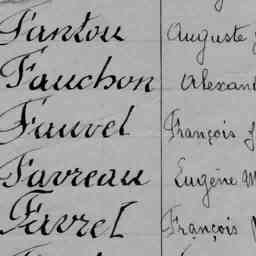 Fantou Auguste
Fauchon Alexan
Fauvel François
Favreau Eugène M
Favrel François